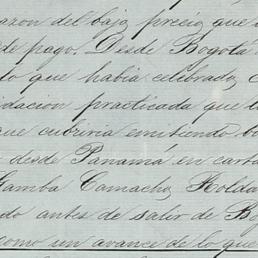 razon del bajo precio que
de pago. Desde Bogotá
lo que habia celebrado,
idacion practicada que
que cubriria emitiendo
desde Panamá, en carta
Gamba Camacho, Rolda
do antes de salir de Bo
como un avance de lo que